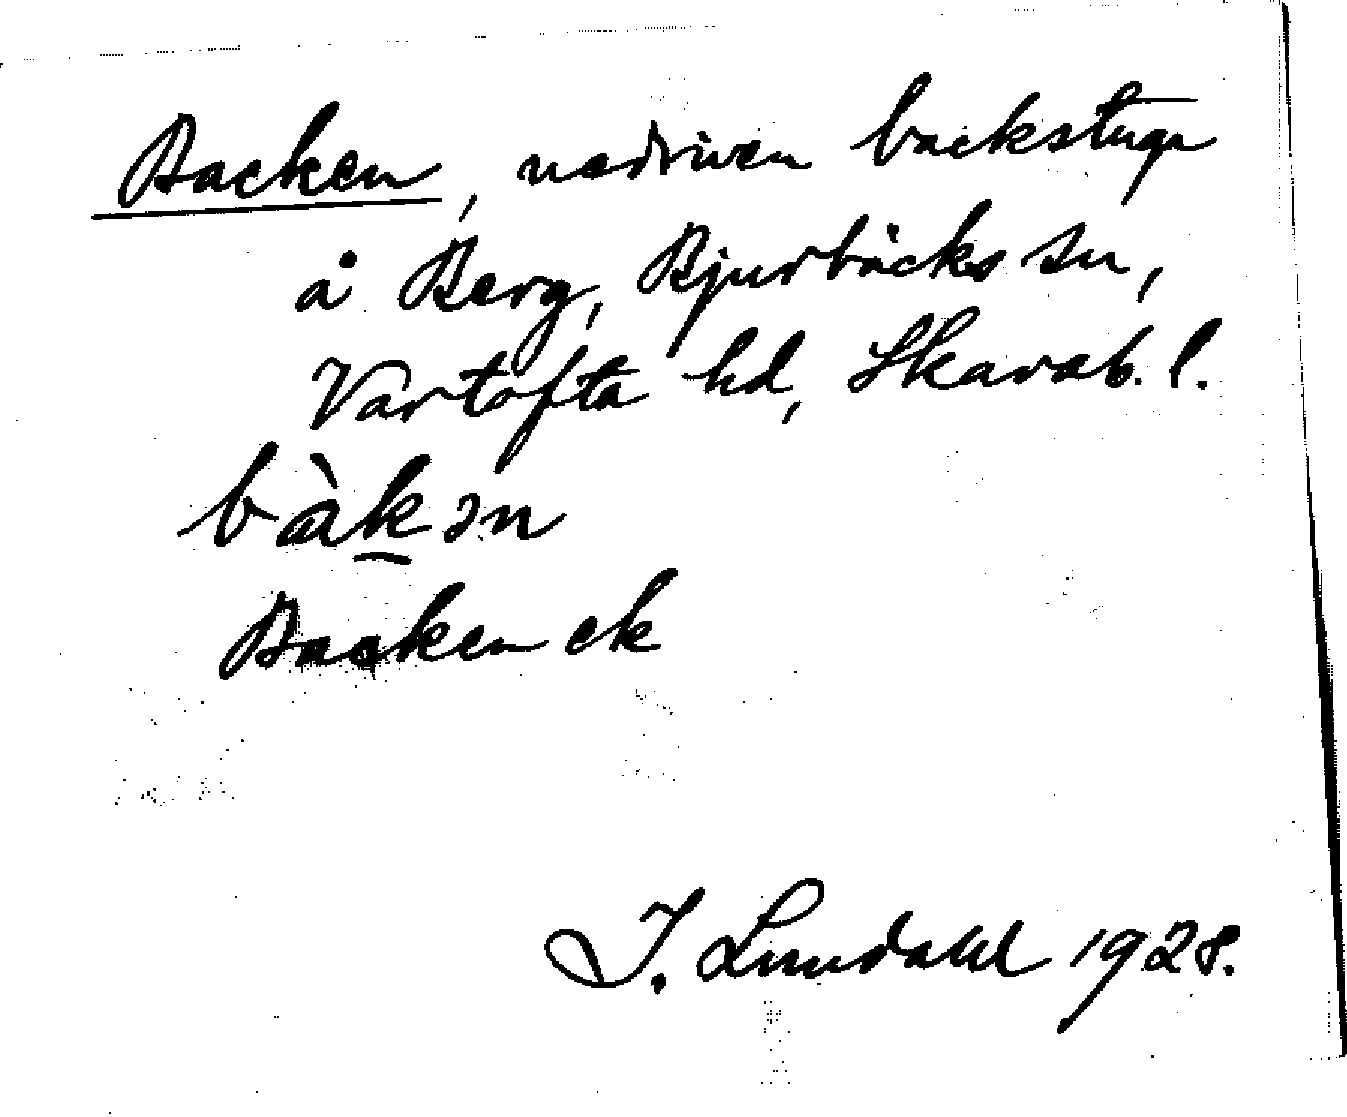 Backen, nedriven backstuga
å Berg, Bjurbäcks sn,
Vartofta hd, Skarab. l.
bàkən
Backen ek
I. Lundahl 1928.